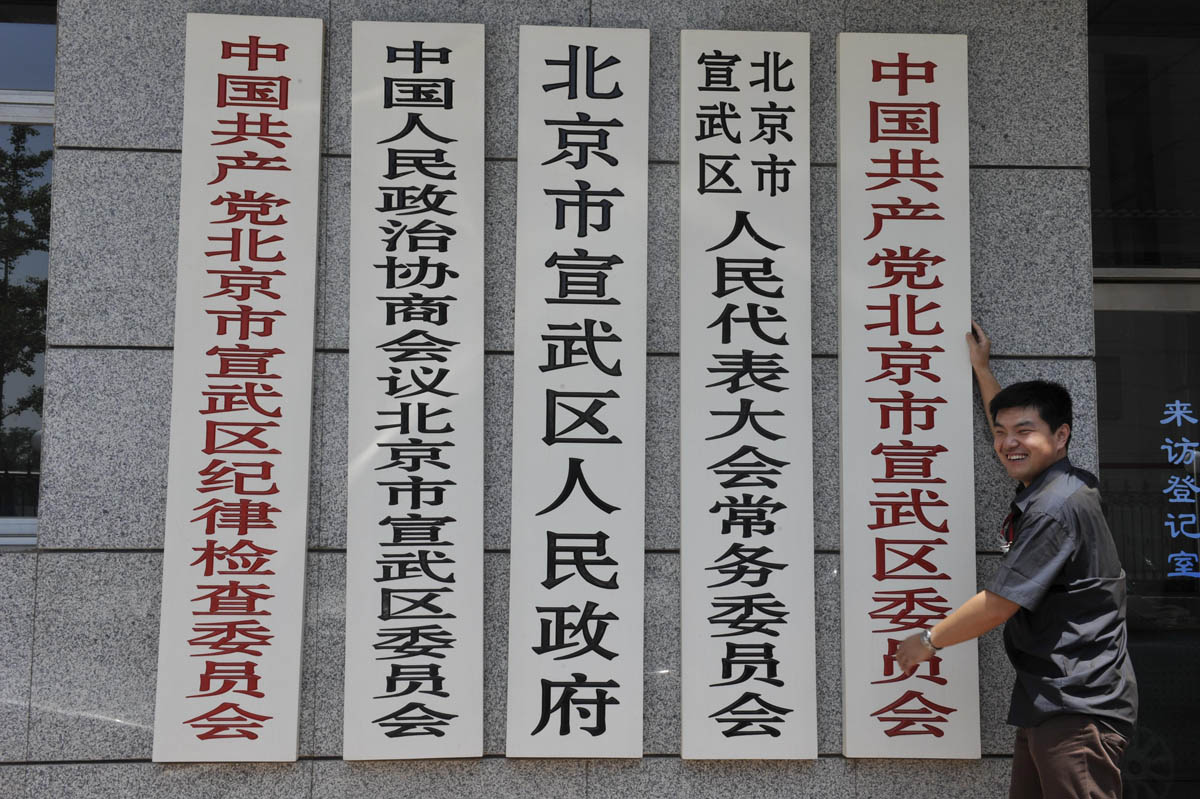 中国共产党北京市宣武区纪律检查委员会
中国人民政治协商会议北京市宣武区委员会
北京市宣武区人民政府
北京市
宣武区
人民代表大会常务委员会
中国共产党北京市宣武区委员会
来访登记室